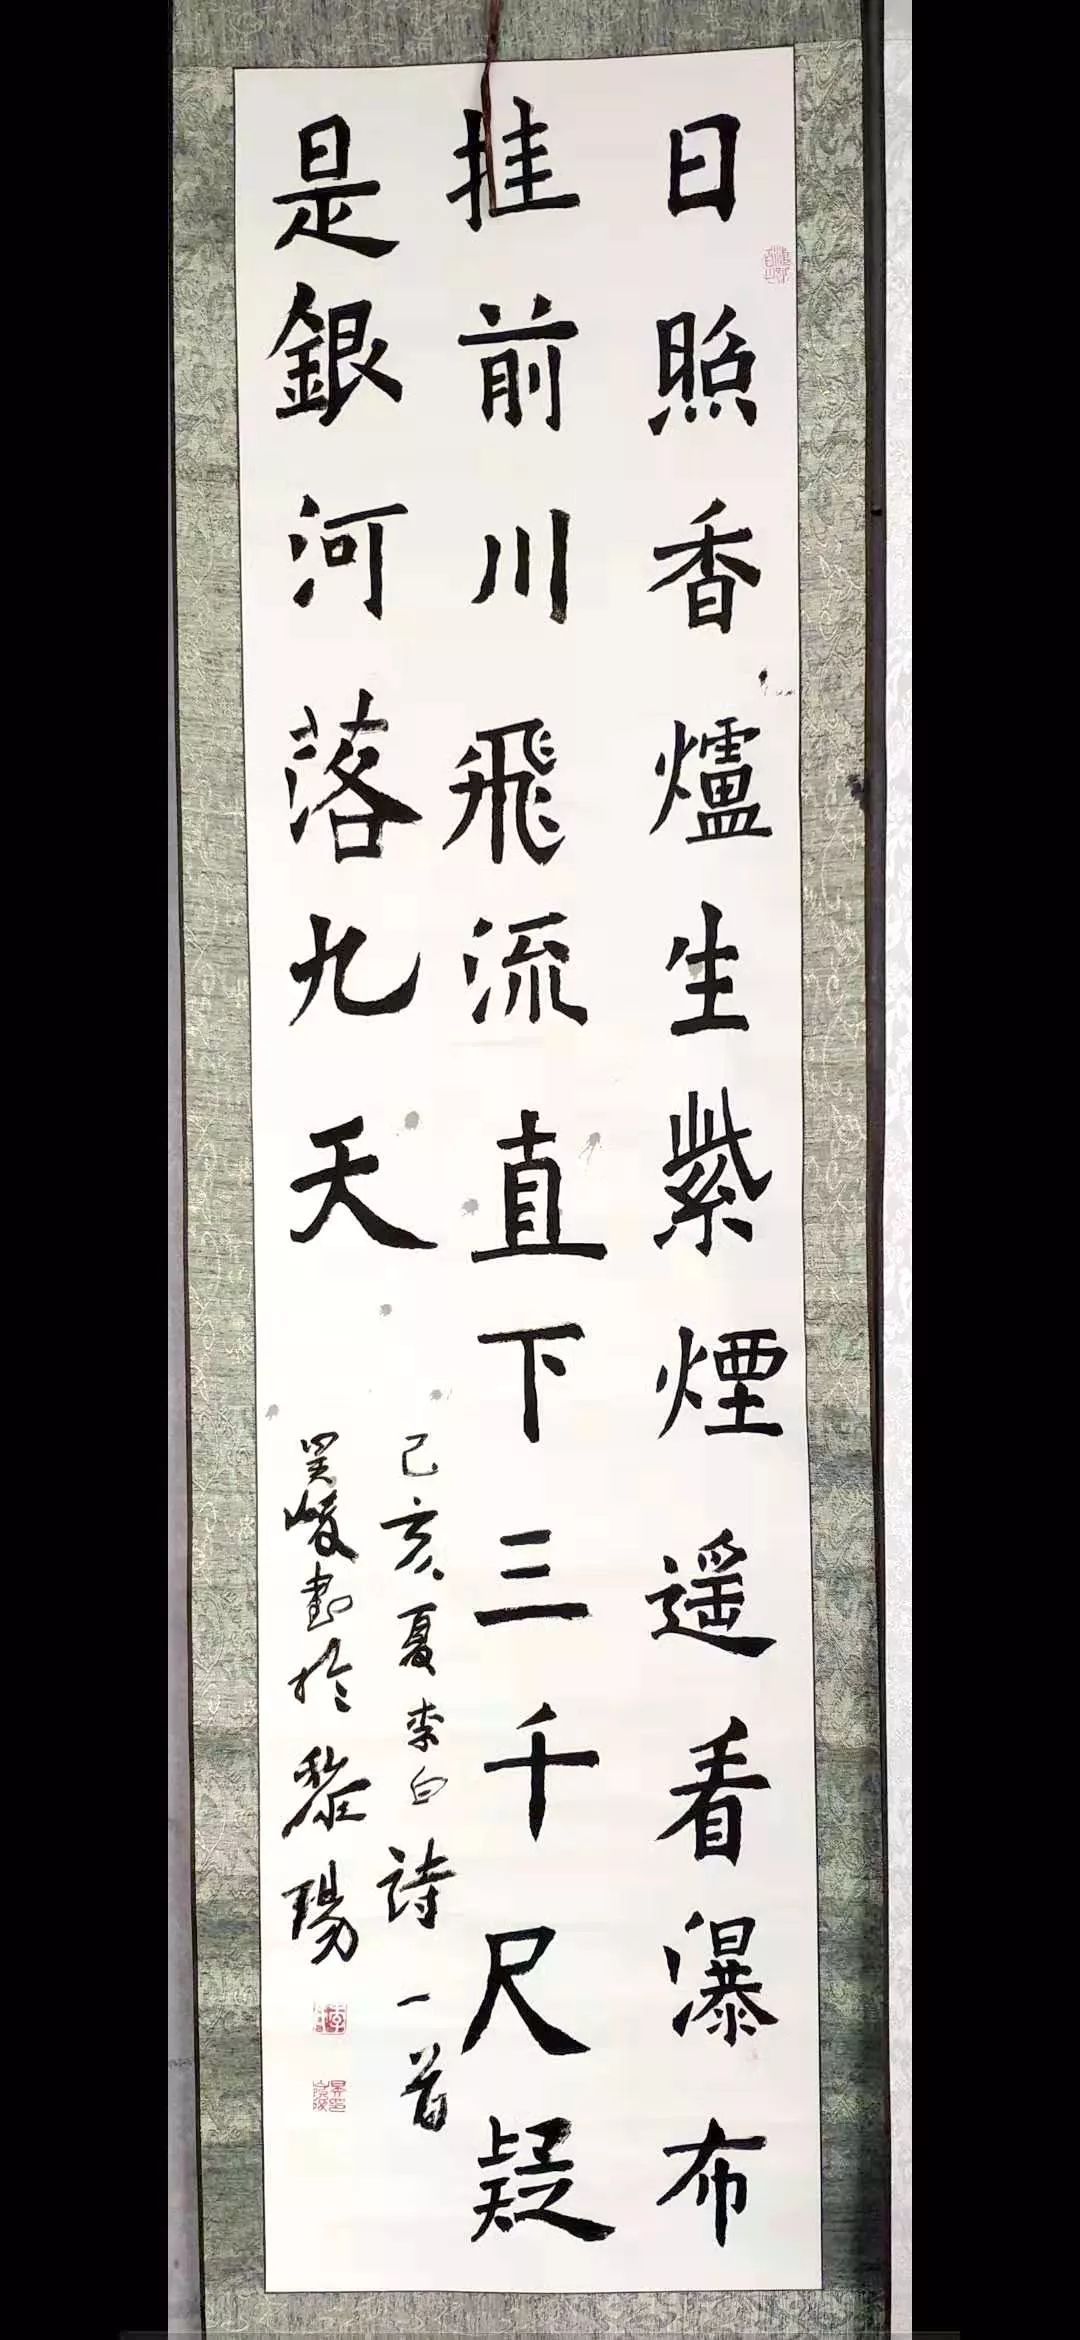 日照香爐生紫煙遥看瀑布
挂前川飛流直下三千尺疑
是銀河落九天
己亥夏李白詩一首
昊峻書於黎陽